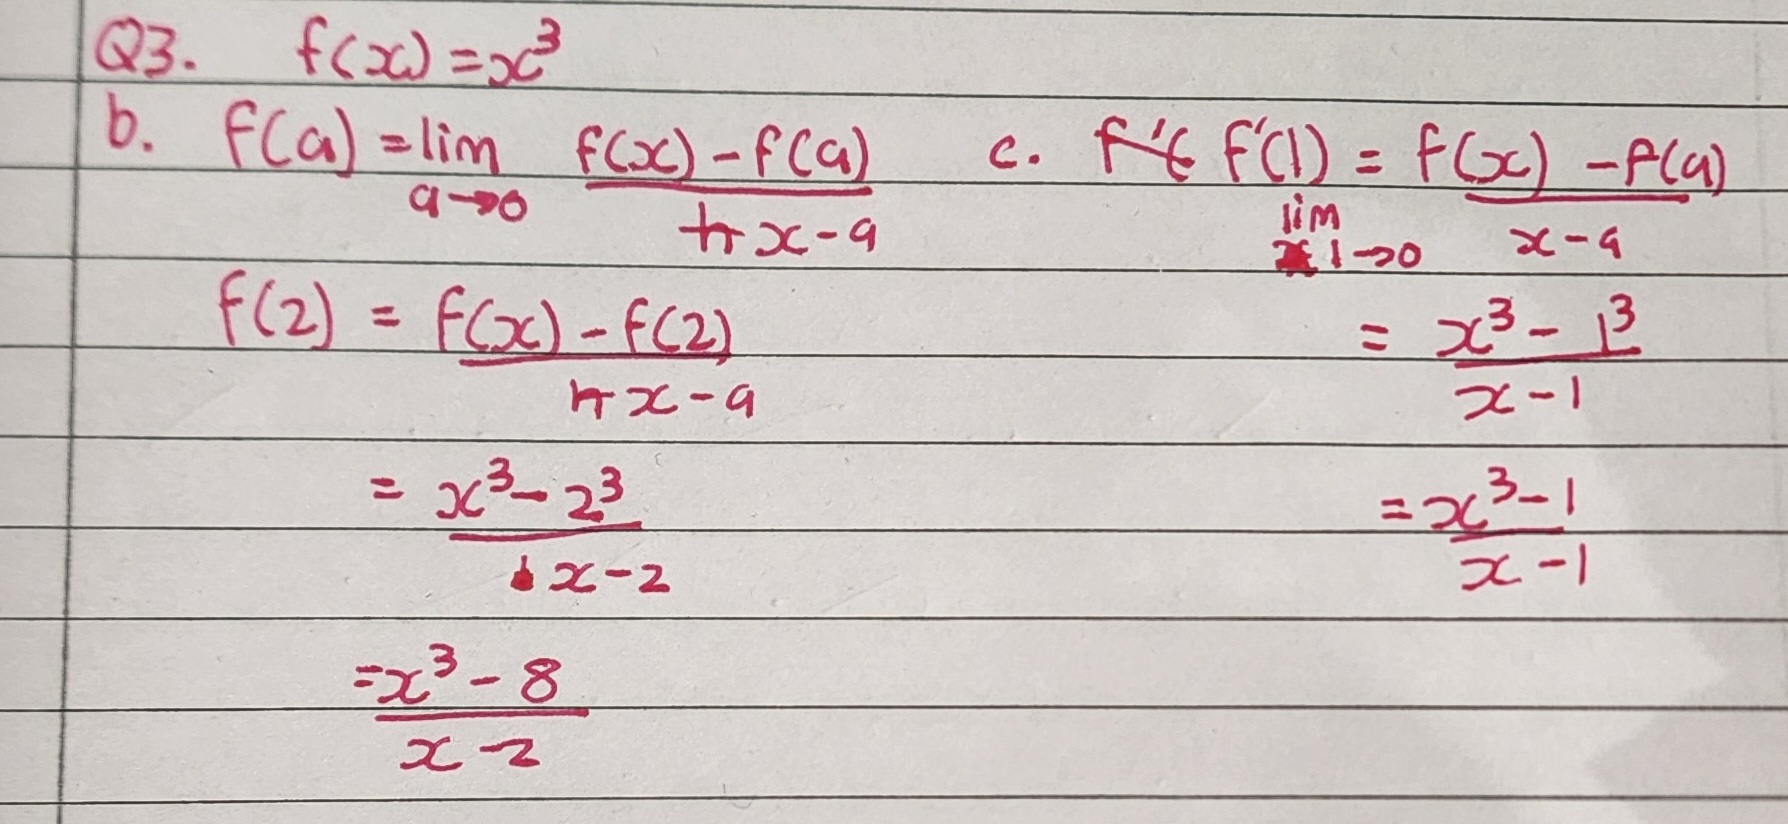 Q3. f(x) = x³
b. f(a) = lim a→0 f(x) - f(a) / x - a
f(2) = f(x) - f(2) / x - a
= x³ - 2³ / x - 2
= x³ - 8 / x - 2
c. f'(1) = lim 1→0 f(x) - f(a) / x - a
= x³ - 1³ / x - 1
= x³ - 1 / x - 1